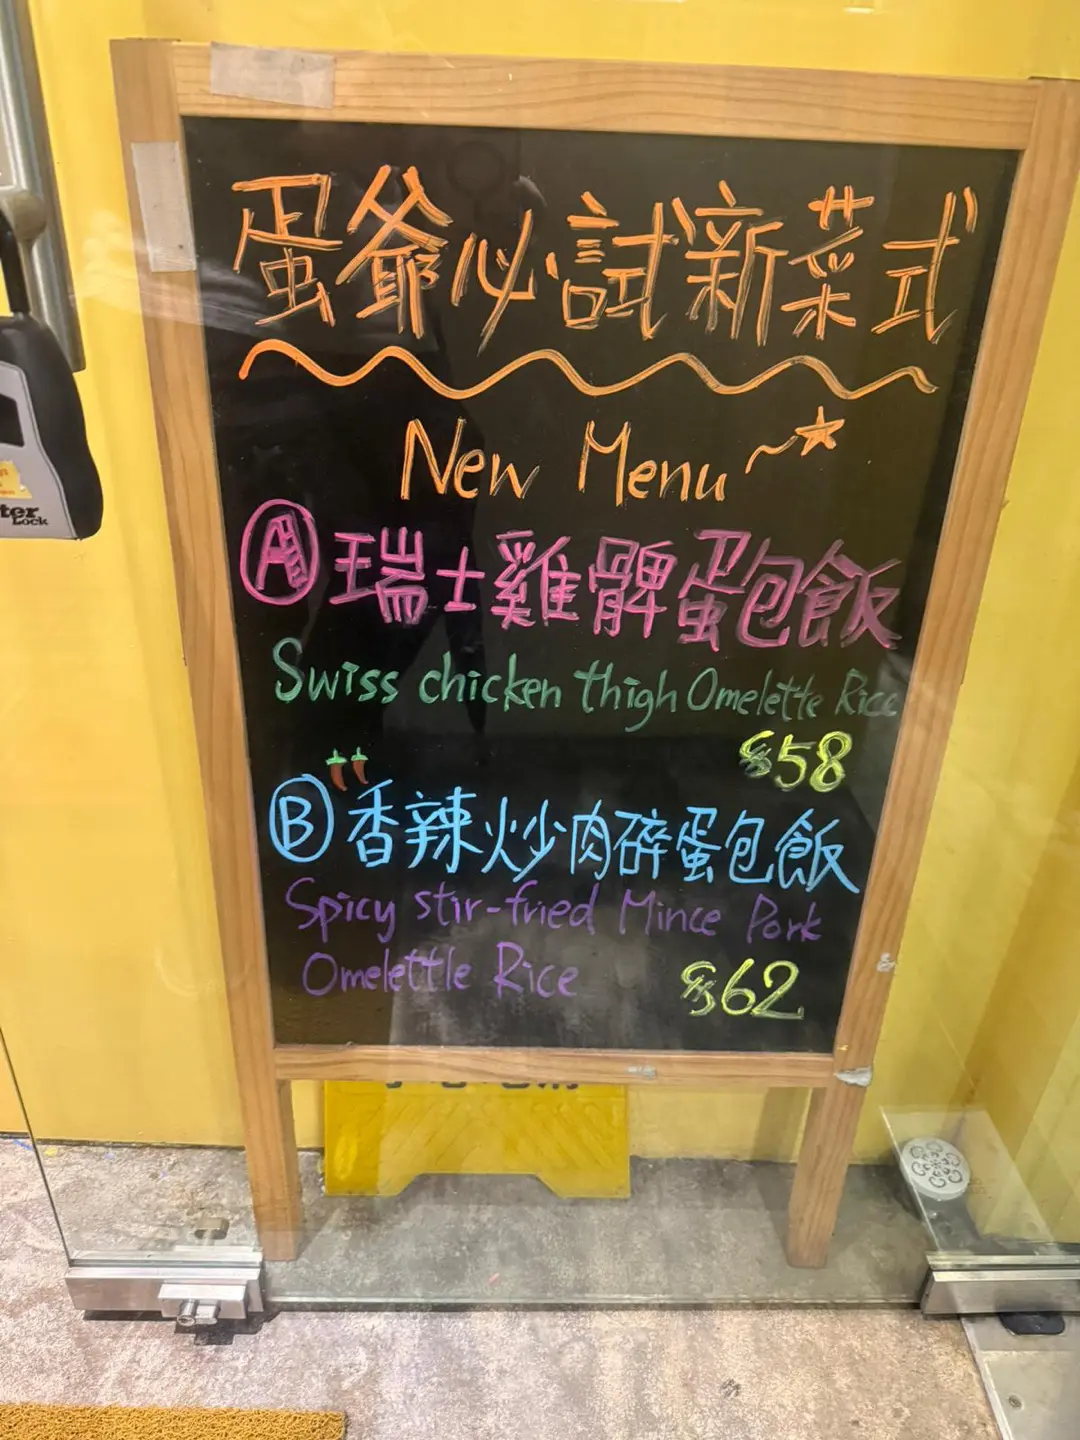 蛋爺必試新菜式
New Menu
A 瑞士雞髀蛋包飯
Swiss chicken thigh Omelette Rice
$58
B 香辣炒肉碎蛋包飯
Spicy stir-fried Mince Pork
Omelettle Rice
$62
ter
Lock